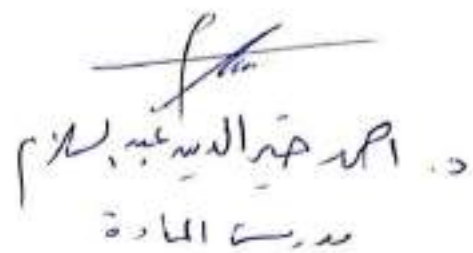 د. احمد خير الدين عبد السلام
مدرس المادة